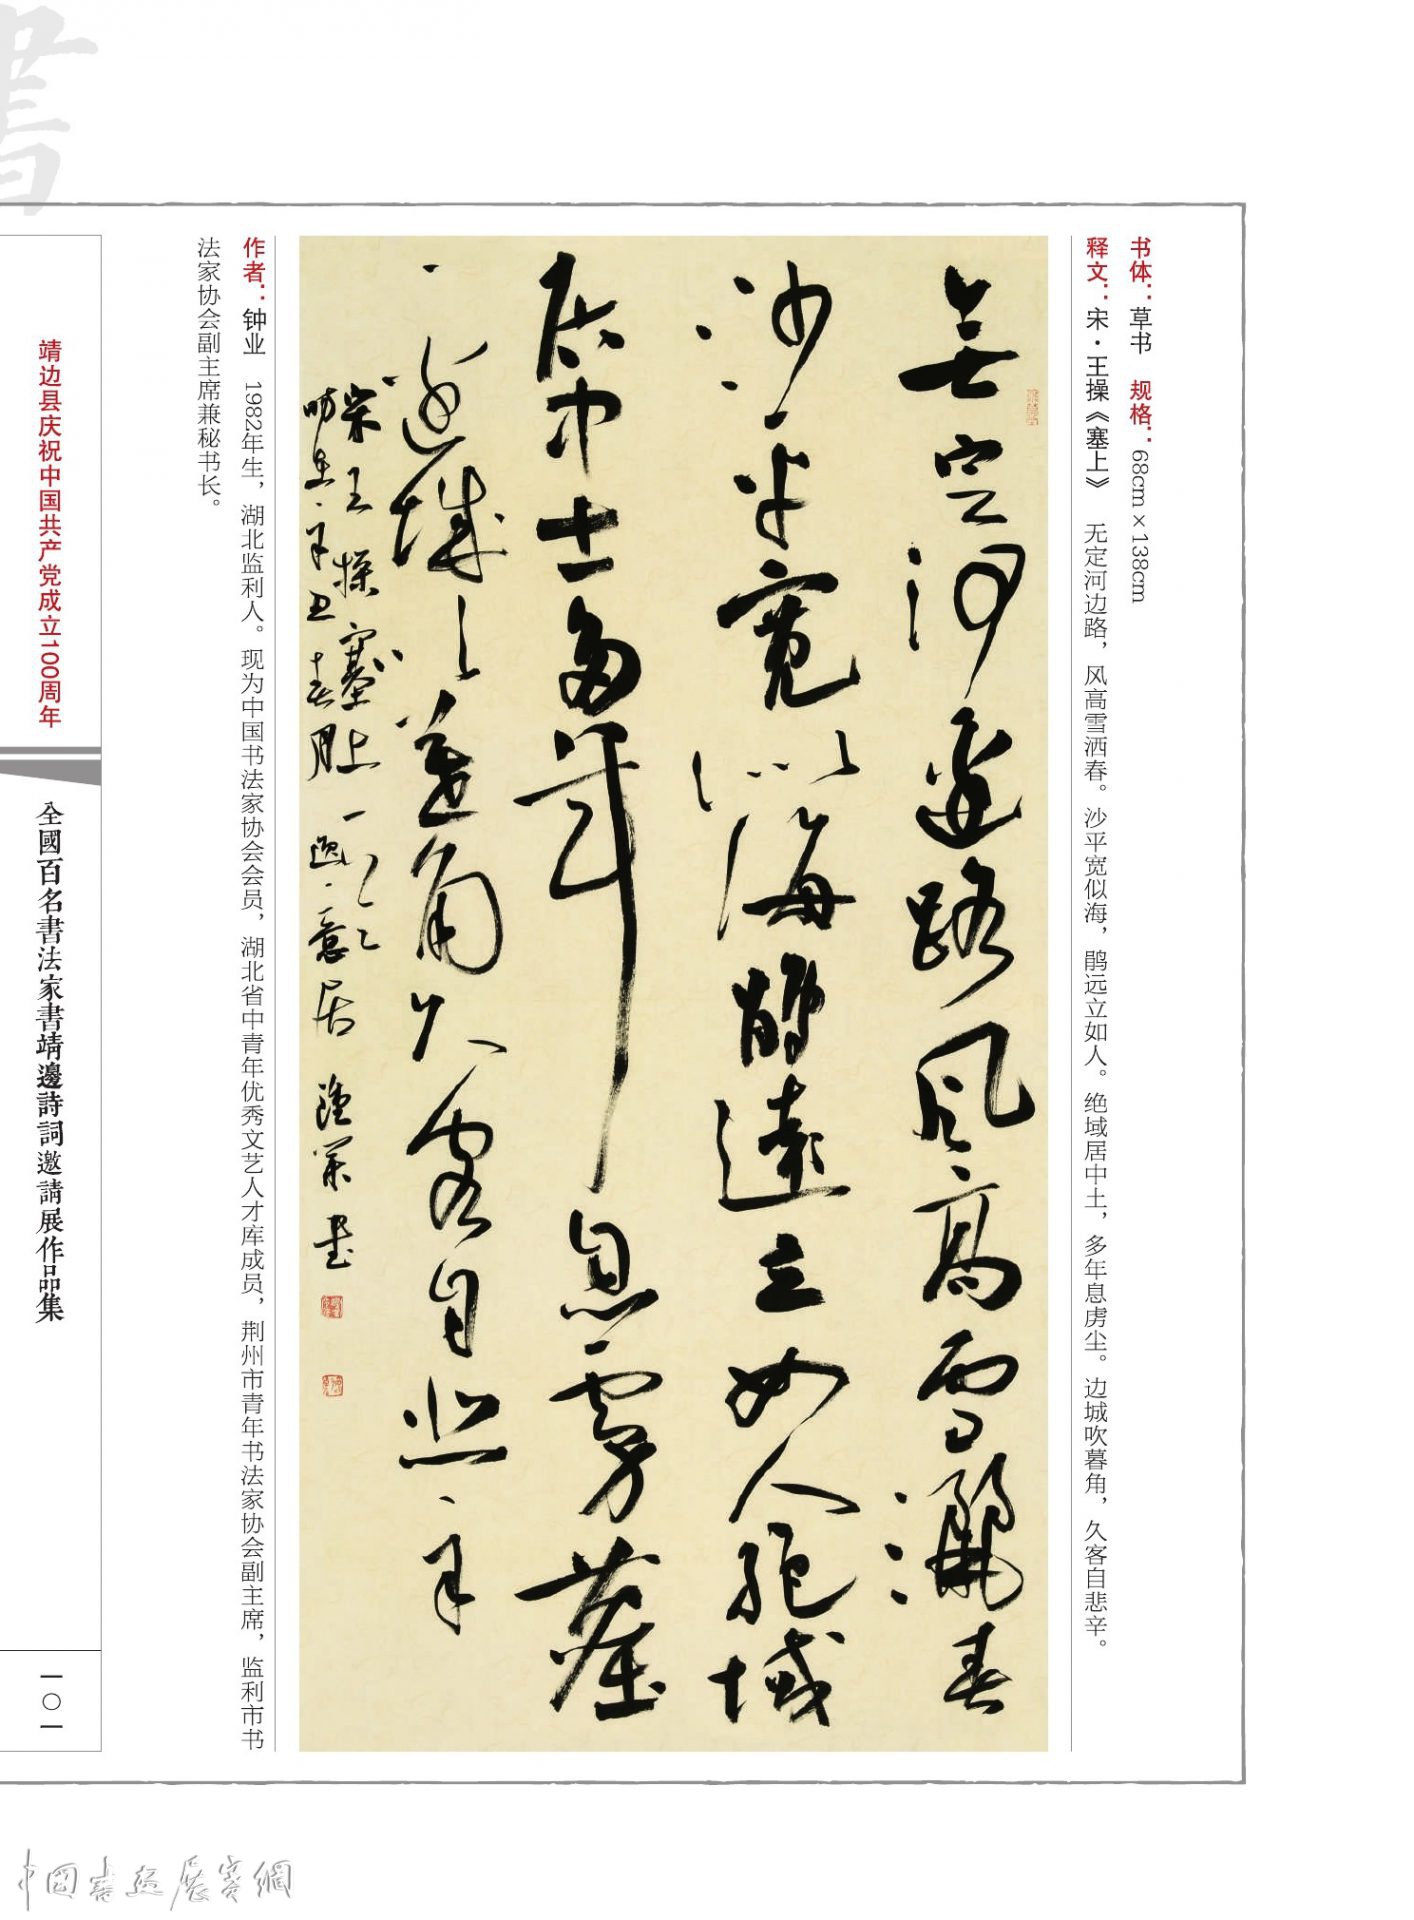 书体：草书 规格：68cm×138cm
释文：宋·王操《塞上》 无定河边路，风高雪洒春。沙平宽似海，鹃远立如人。绝域居中土，多年息虏尘。边城吹暮角，久客自悲辛。
無定河邊路風高雪灑春
沙平宽似海鹃遠立如人絕域
居中土多年息虏塵
邊城吹暮角久客自悲辛
宋王操塞上一首
時在辛丑春月於逸意居鍾業書
作者：钟业 1982年生，湖北监利人。现为中国书法家协会会员，湖北省中青年优秀文艺人才库成员，荆州市青年书法家协会副主席，监利市书
法家协会副主席兼秘书长。
靖边县庆祝中国共产党成立100周年
全國百名書法家書靖邊詩詞邀請展作品集
一〇一
書
中國書画展賽網